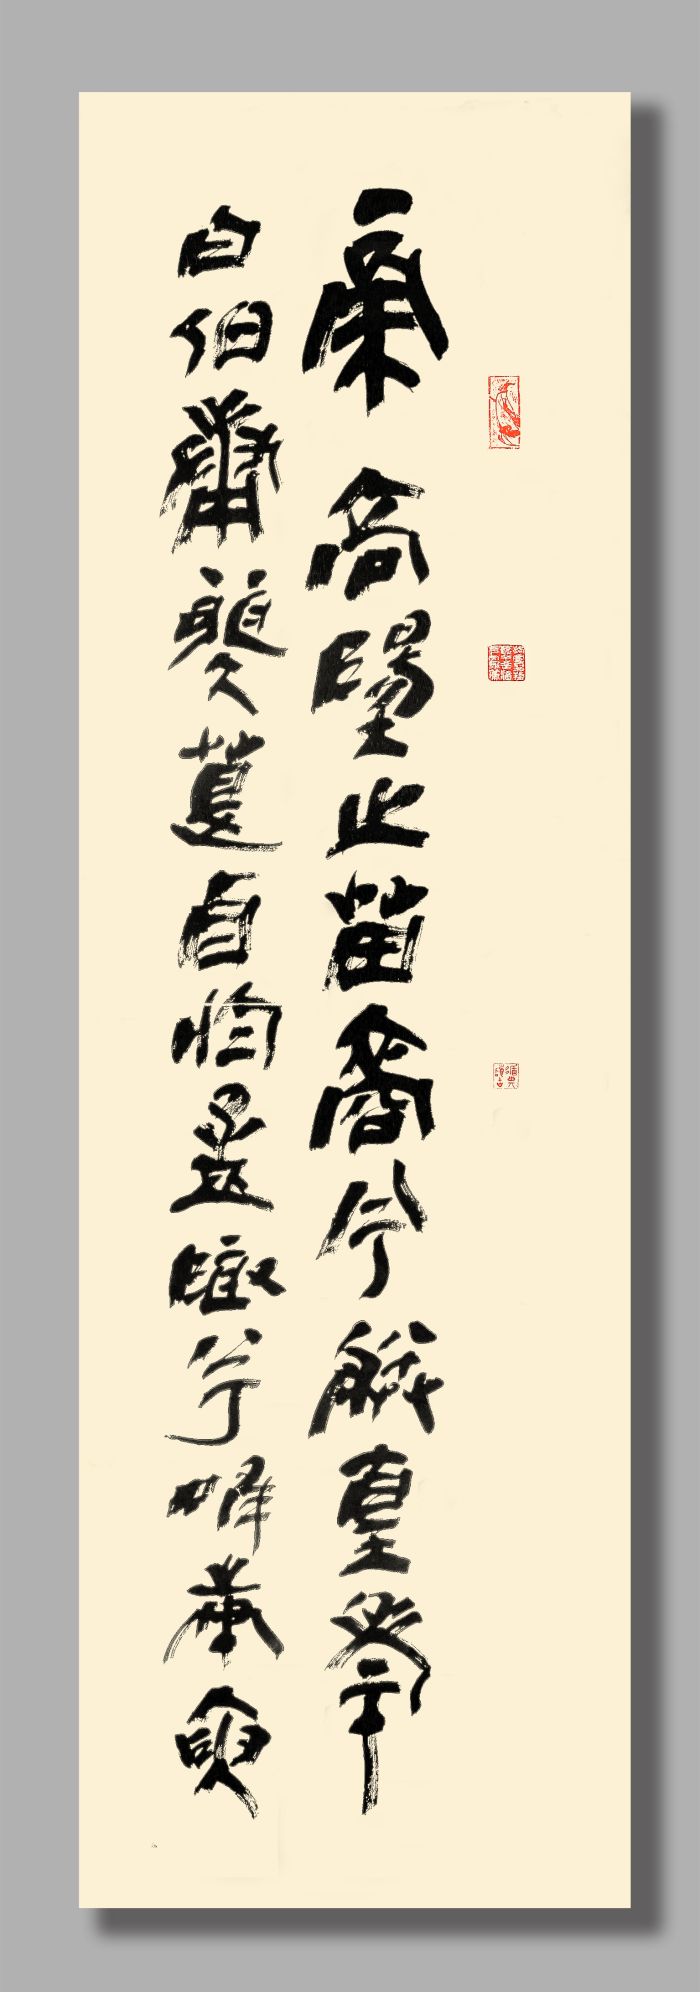 帝高陽之苗裔兮朕皇考
曰伯庸攝提貞於孟陬兮唯庚寅